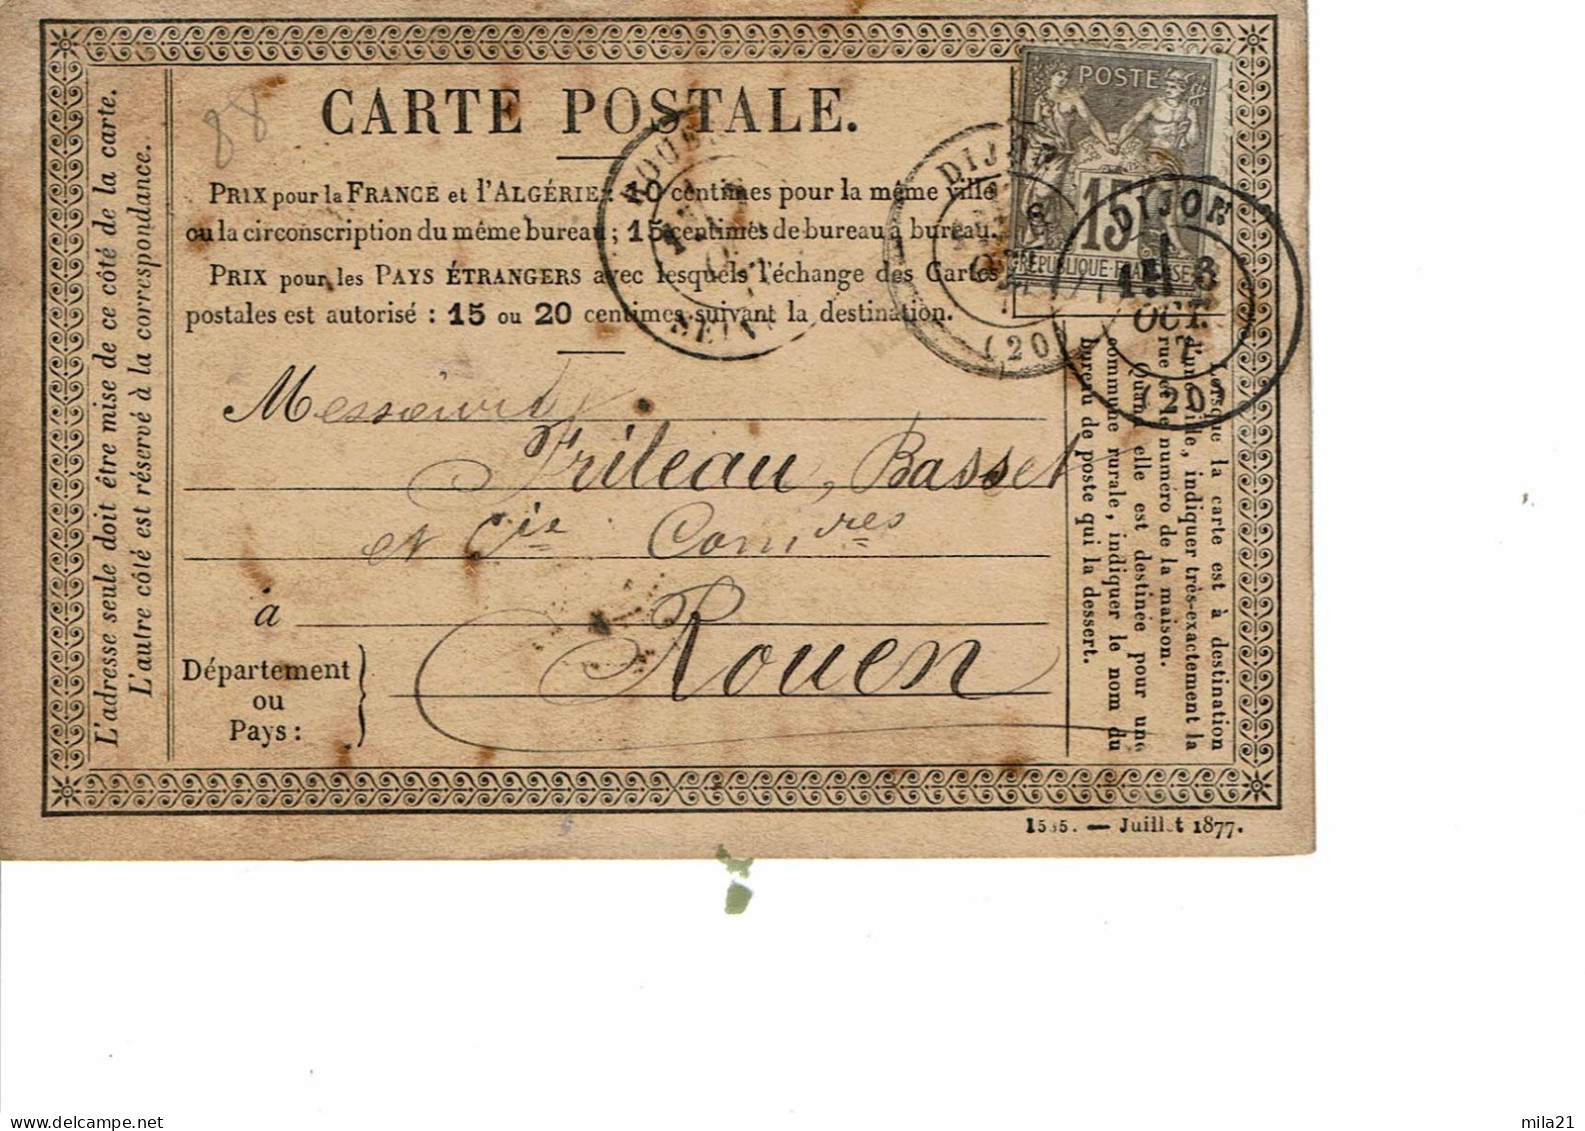 CARTE POSTALE.
88
PRIX pour la FRANCE et l'ALGÉRIE : 10 centimes pour la même ville
ou la circonscription du même bureau ; 15 centimes de bureau à bureau.
PRIX pour les PAYS ÉTRANGERS avec lesquels l'échange des Cartes
postales est autorisé : 15 ou 20 centimes suivant la destination.
POSTE
15
REPUBLIQUE FRANCAISE
DIJON
(20)
DIJON
8
OCT.
(20)
Messieurs
Frileau, Basset
et Cie Comres
à
Rouen
Département
ou
Pays :
L'adresse seule doit être mise de ce côté de la carte.
L'autre côté est réservé à la correspondance.
Lorsque la carte est à destination
d'une ville, indiquer très-exactement la
rue et le numéro de la maison.
Quand elle est destinée pour une
commune rurale, indiquer le nom du
bureau de poste qui la dessert.
— Juillet 1877.
delcampe.net
mila21